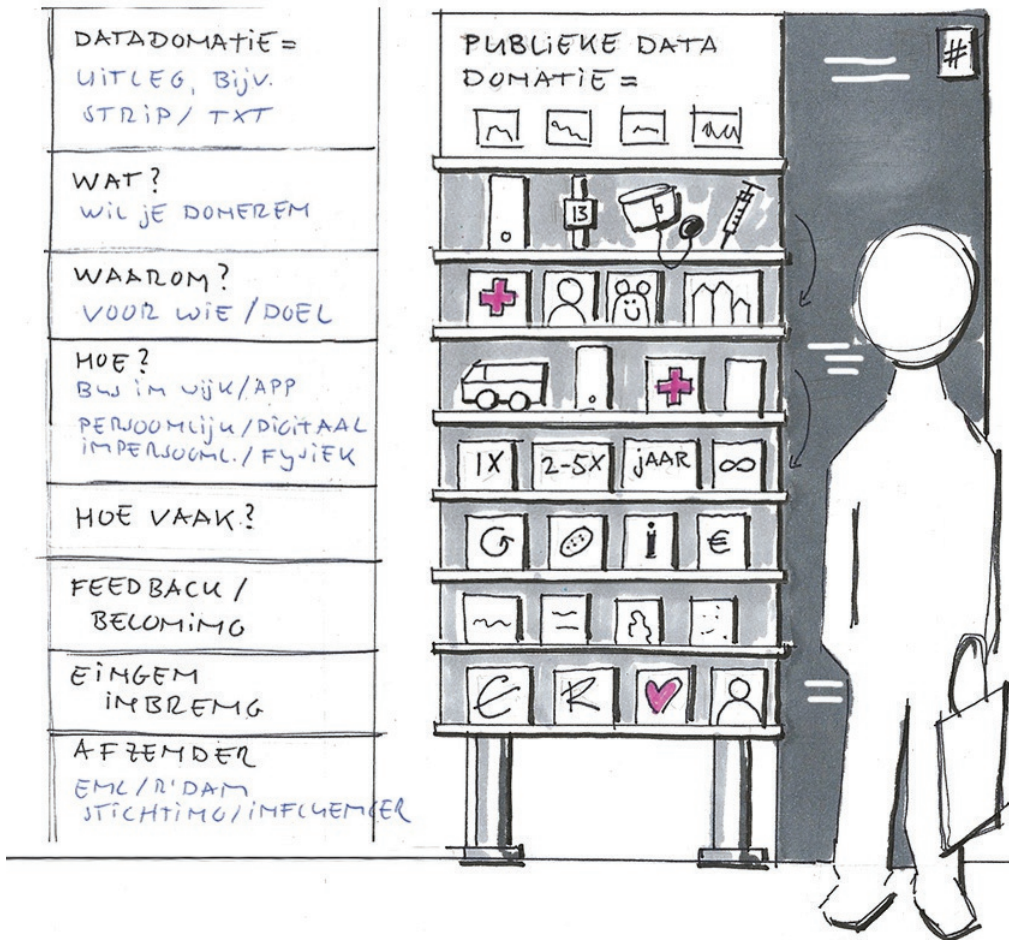 DATADONATIE =
UITLEG, BIJV.
STRIP / TXT
WAT?
WIL JE DONEREN
WAAROM?
VOOR WIE / DOEL
HOE?
BUS IN WIJK / APP
PERSOONLIJK / DIGITAAL
IMPERSOONL. / FYSIEK
HOE VAAK?
FEEDBACK /
BELONING
EINGEN
INBRENG
AFZENDER
EMC / R'DAM
STICHTING / INFLUENCER
PUBLIEKE DATA
DONATIE =
13
1X 2-5X JAAR ∞
i €
E R
#